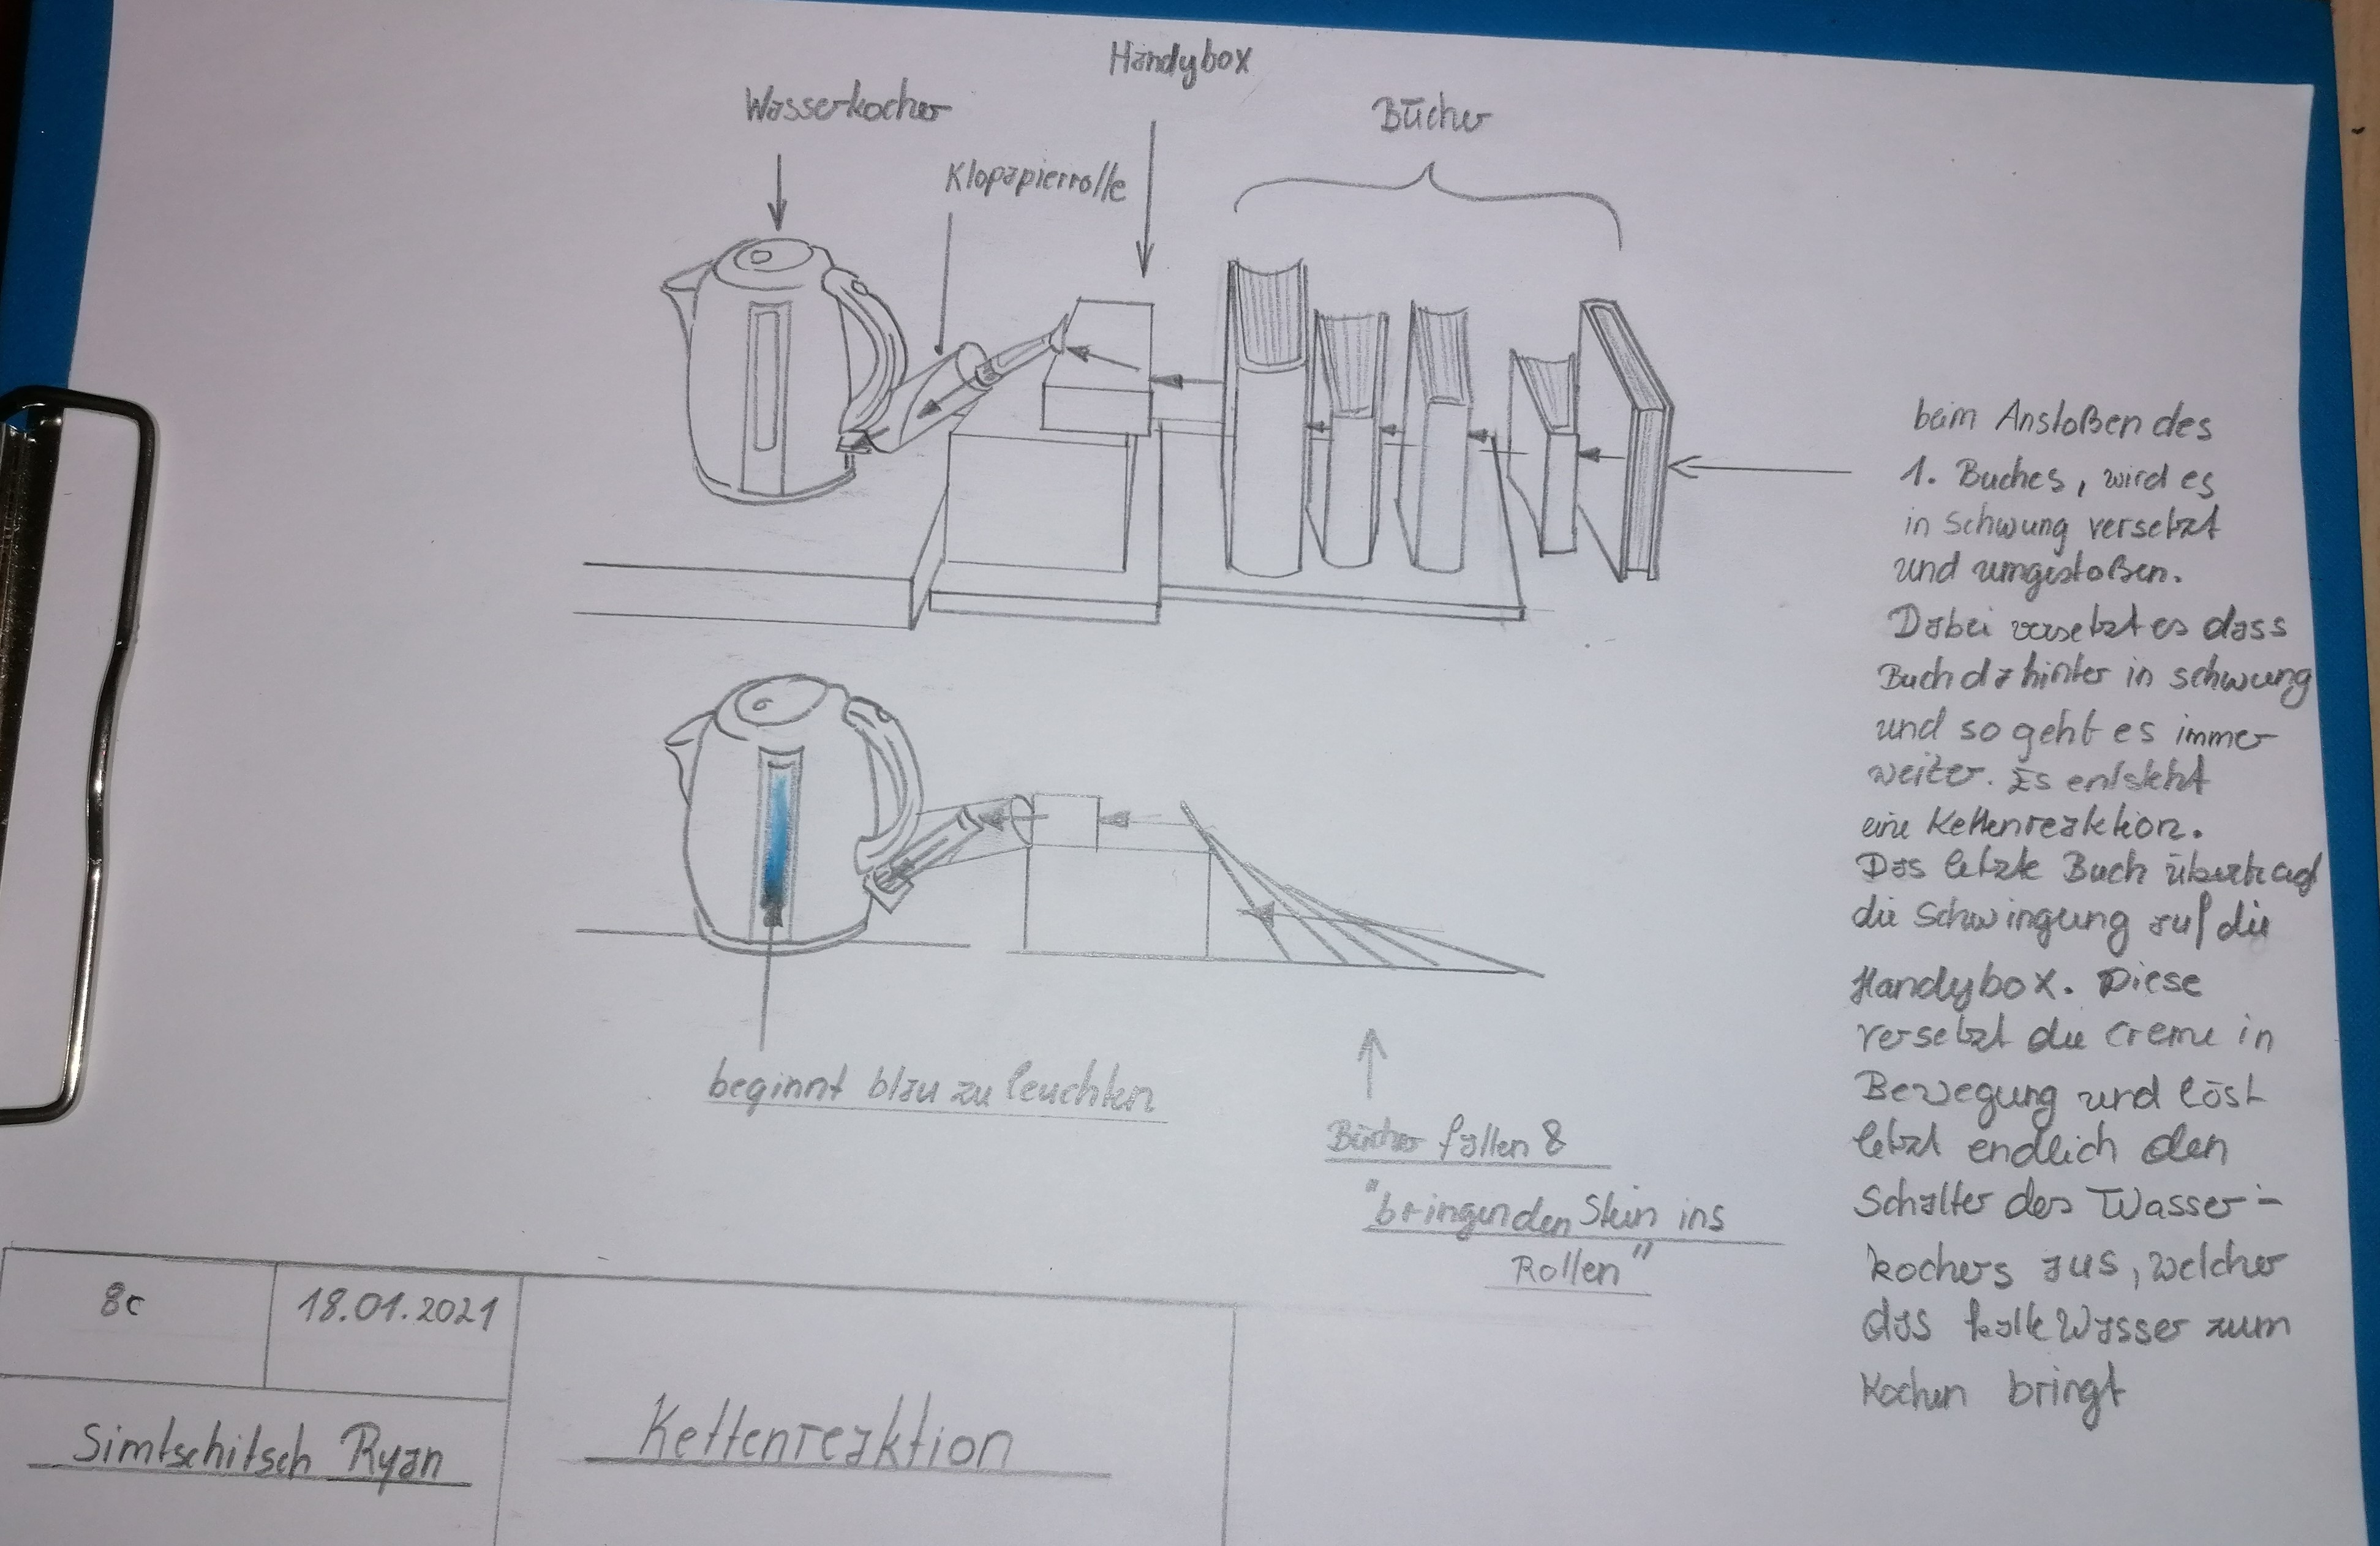 Handybox
Wasserkocher
Bücher
Klopapierrolle
beim Anstoßen des
1. Buches, wird es
in Schwung versetzt
und umgestoßen.
Dabei versetzt es dass
Buch dahinter in schwung
und so geht es immer
weiter. Es entsteht
eine Kettenreaktion.
Das letzte Buch übertragt
die Schwingung auf die
Handybox. Diese
versetzt die Creme in
Bewegung und löst
letzt endlich den
Schalter des Wasser-
kochers aus, welcher
das kalte Wasser zum
Kochen bringt
beginnt blau zu leuchten
Bücher fallen &
"bringen den Stein ins
Rollen"
8c
18.01.2021
Simtschitsch Ryan
Kettenreaktion